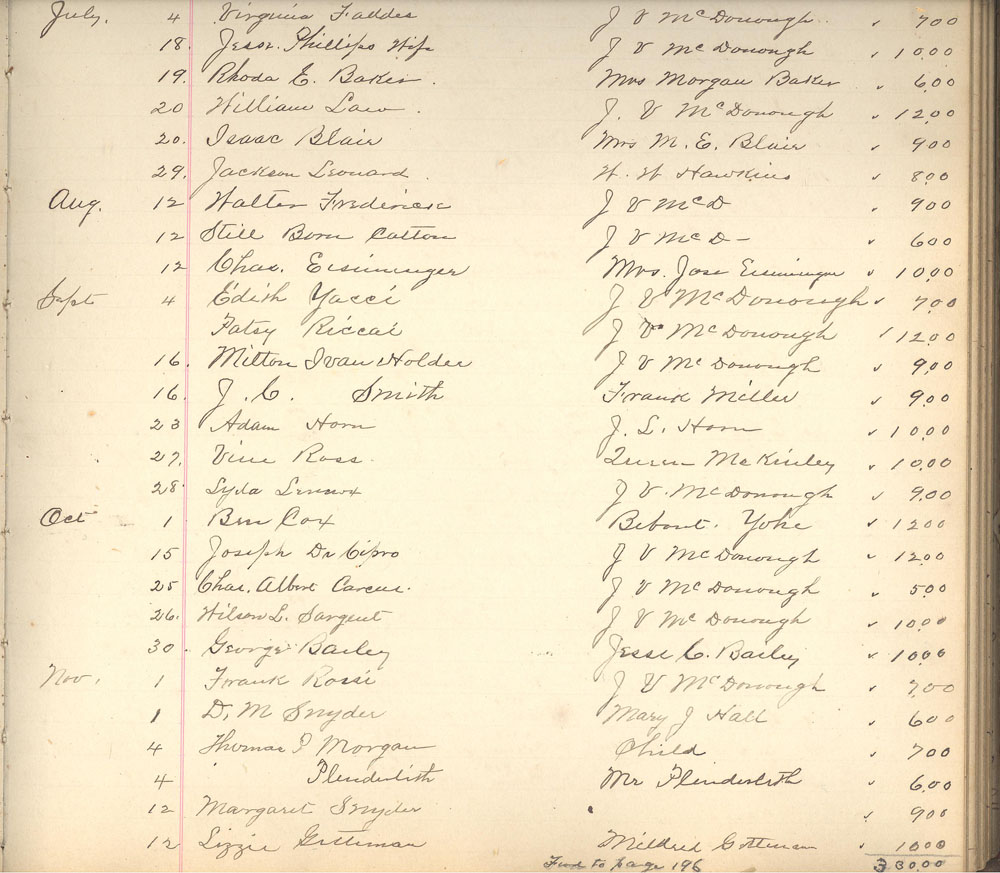 July. 4 Virginia Faddes J V McDonough 7.00
18. Jesse Phillips Wife J V McDonough 10.00
19. Rhoda E. Baker. Mrs Morgan Baker 6.00
20 William Law. J. V McDonough 12.00
20. Isaac Blair Mrs M. E. Blair 9.00
29. Jackson Leonard. W. W Hawkins 8.00
Aug. 12 Walter Frederick J V McD 9.00
12 Still Born Catton J V McD - 6.00
12 Chas. Eisiminger Mrs. Jase Eisiminger 10.00
Sept 4 Edith Yacci J V McDonough 7.00
Patsy Riccai J V McDonough 12.00
16. Milton Ivan Holder J V McDonough 9.00
16. J. C. Smith Frank Miller 9.00
23 Adam Horn J. L. Horn 10.00
27. Vine Ross. McKinley 10.00
28 Lyda Lennox J V. McDonough 9.00
Oct 1 Ben Cox Bebout. Yoke 12.00
15 Joseph De Cipro J V McDonough 12.00
25 Chas. Albert J V McDonough 5.00
26. Wilson L. Sargent J V McDonough 10.00
30. George Bailey Jesse C. Bailey 10.00
Nov. 1 Frank Rossi J V McDonough 7.00
1 D. M Snyder Mary J Hall 6.00
4 Thomas P Morgan Child 7.00
4 Plenderlith Mr Plenderlith 6.00
12 Margaret Snyder 9.00
12 Lizzie Gotteman Mildred Gotteman 10.00
Fwd to page 196 330.00